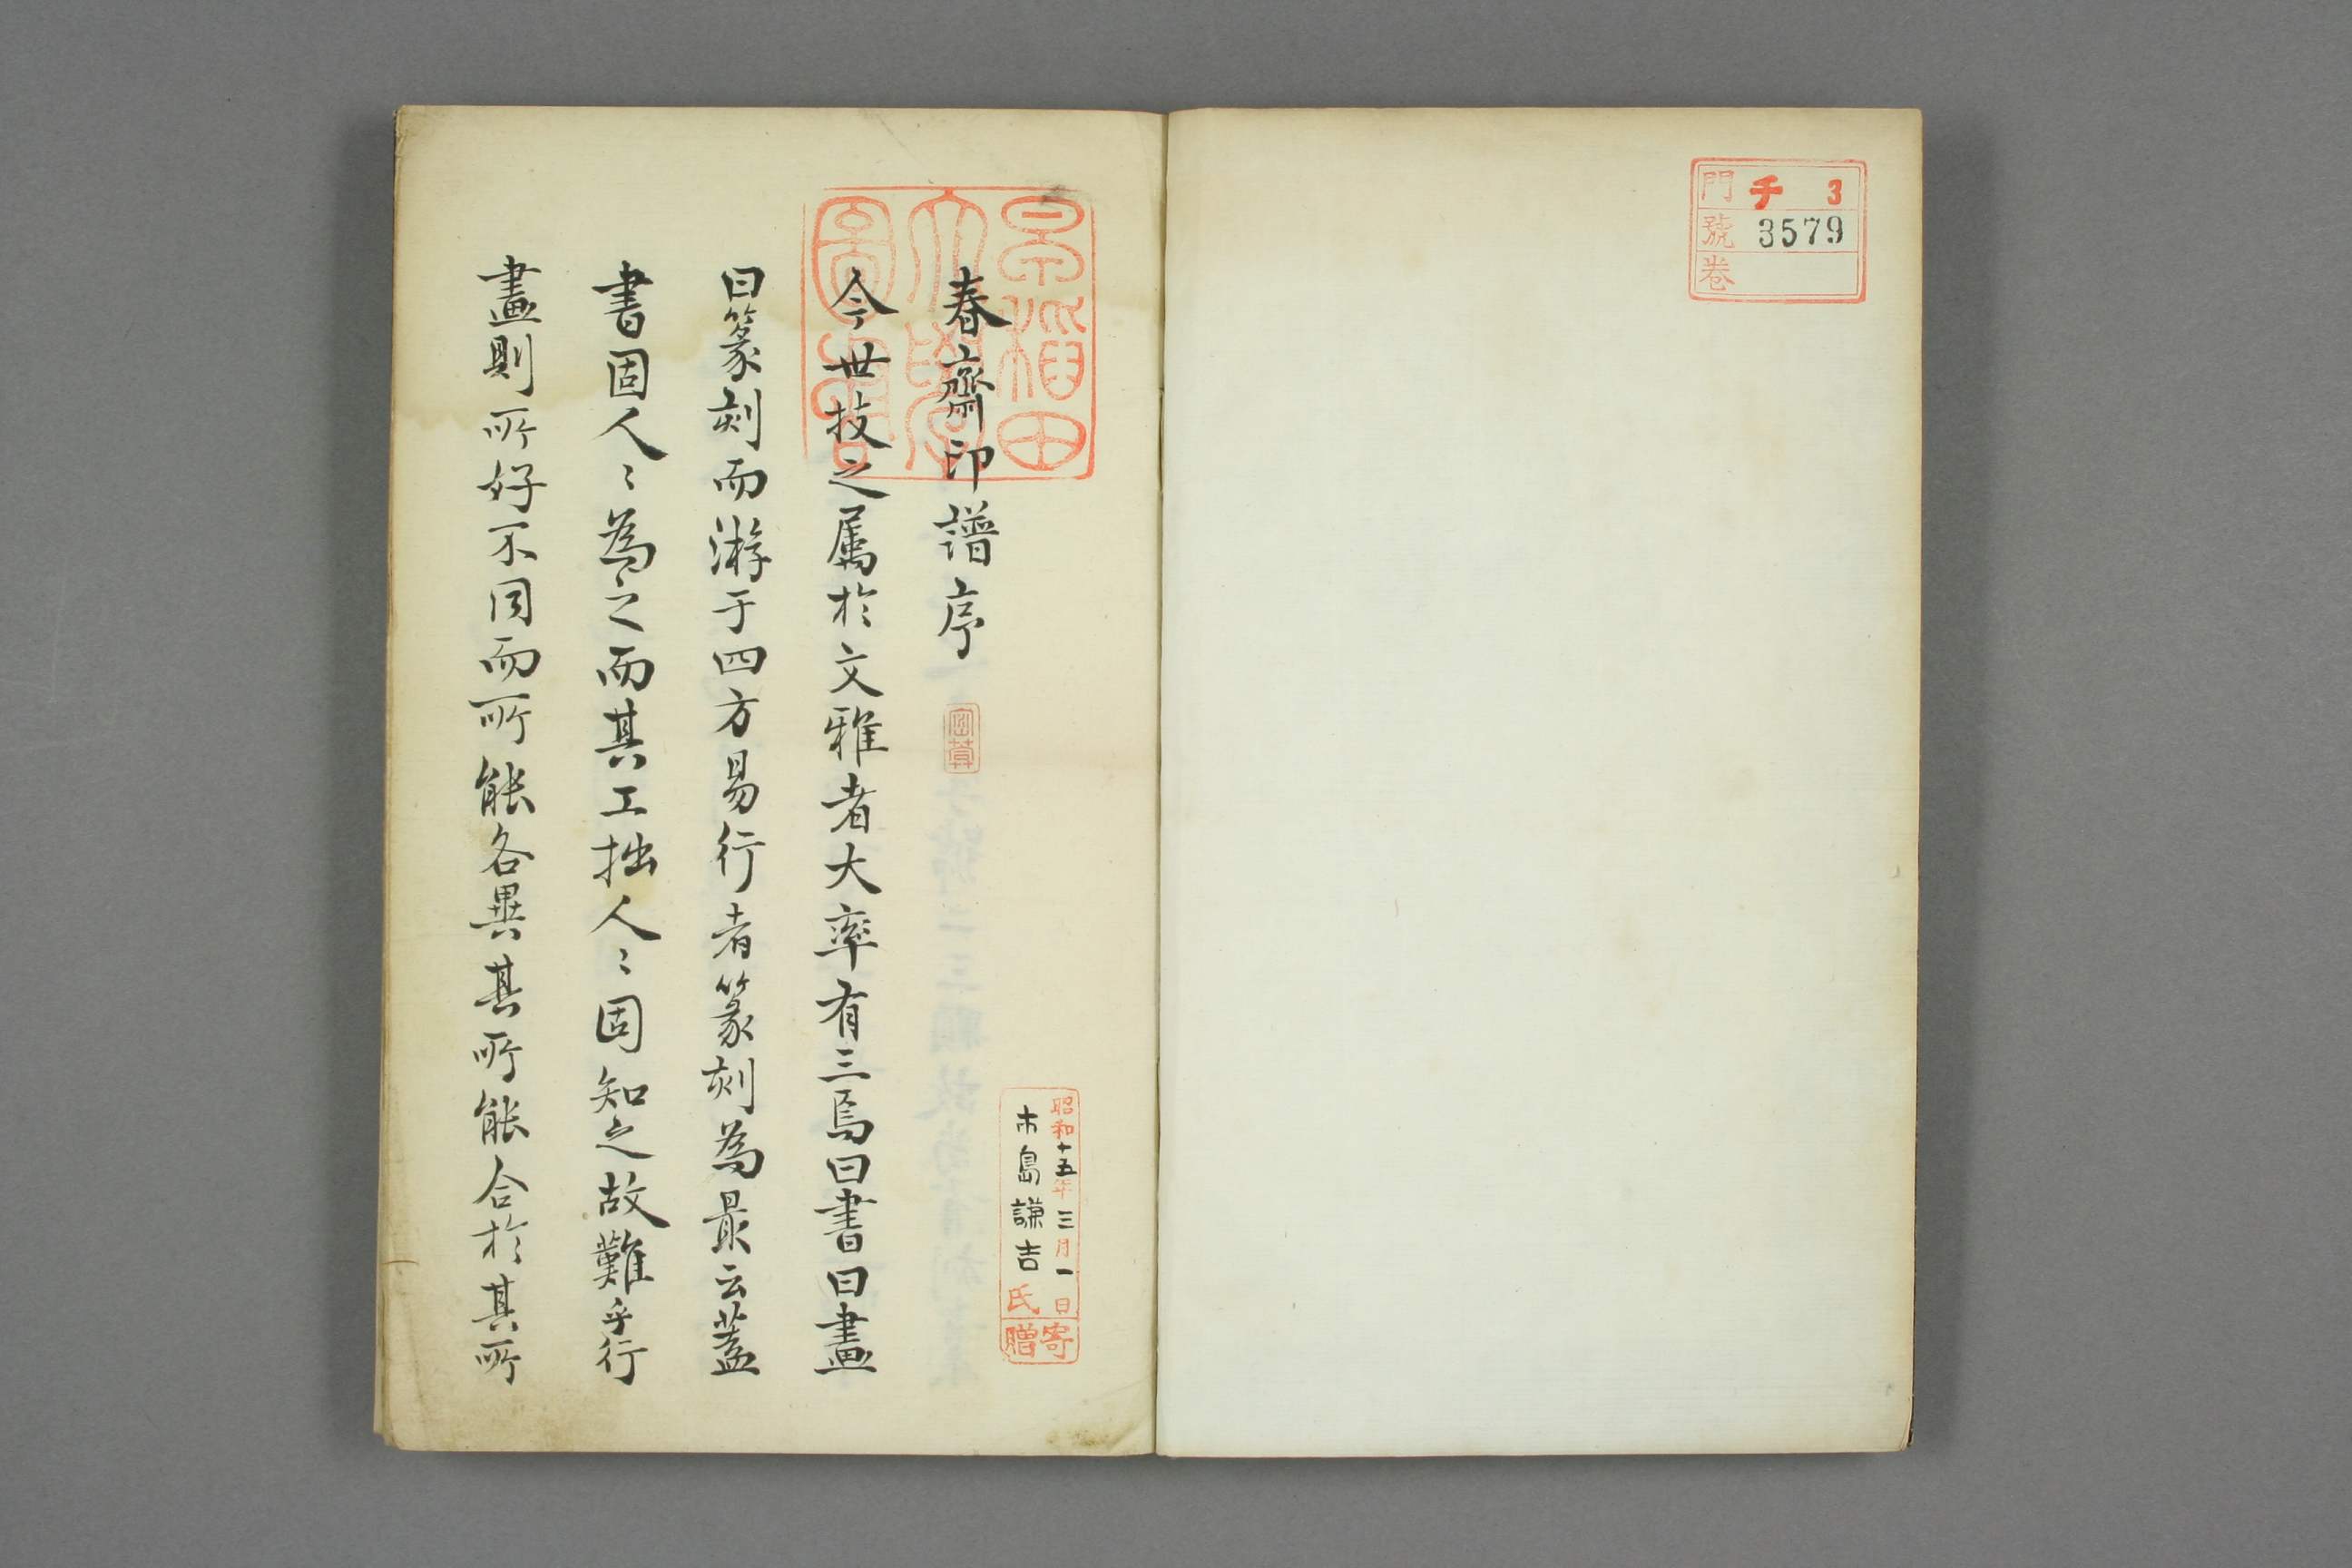 門 チ 3
號 3579
卷
早稲田
大學
圖書
春齋印譜序
今世技之属於文雅者大率有三焉曰書曰畫
曰篆刻而游于四方易行者篆刻為最云蓋
書固人〻為之而其工拙人〻固知之故難乎行
畫則所好不同而所能各異其所能合於其所
昭和十五年三月一日
木島謙吉氏
寄贈